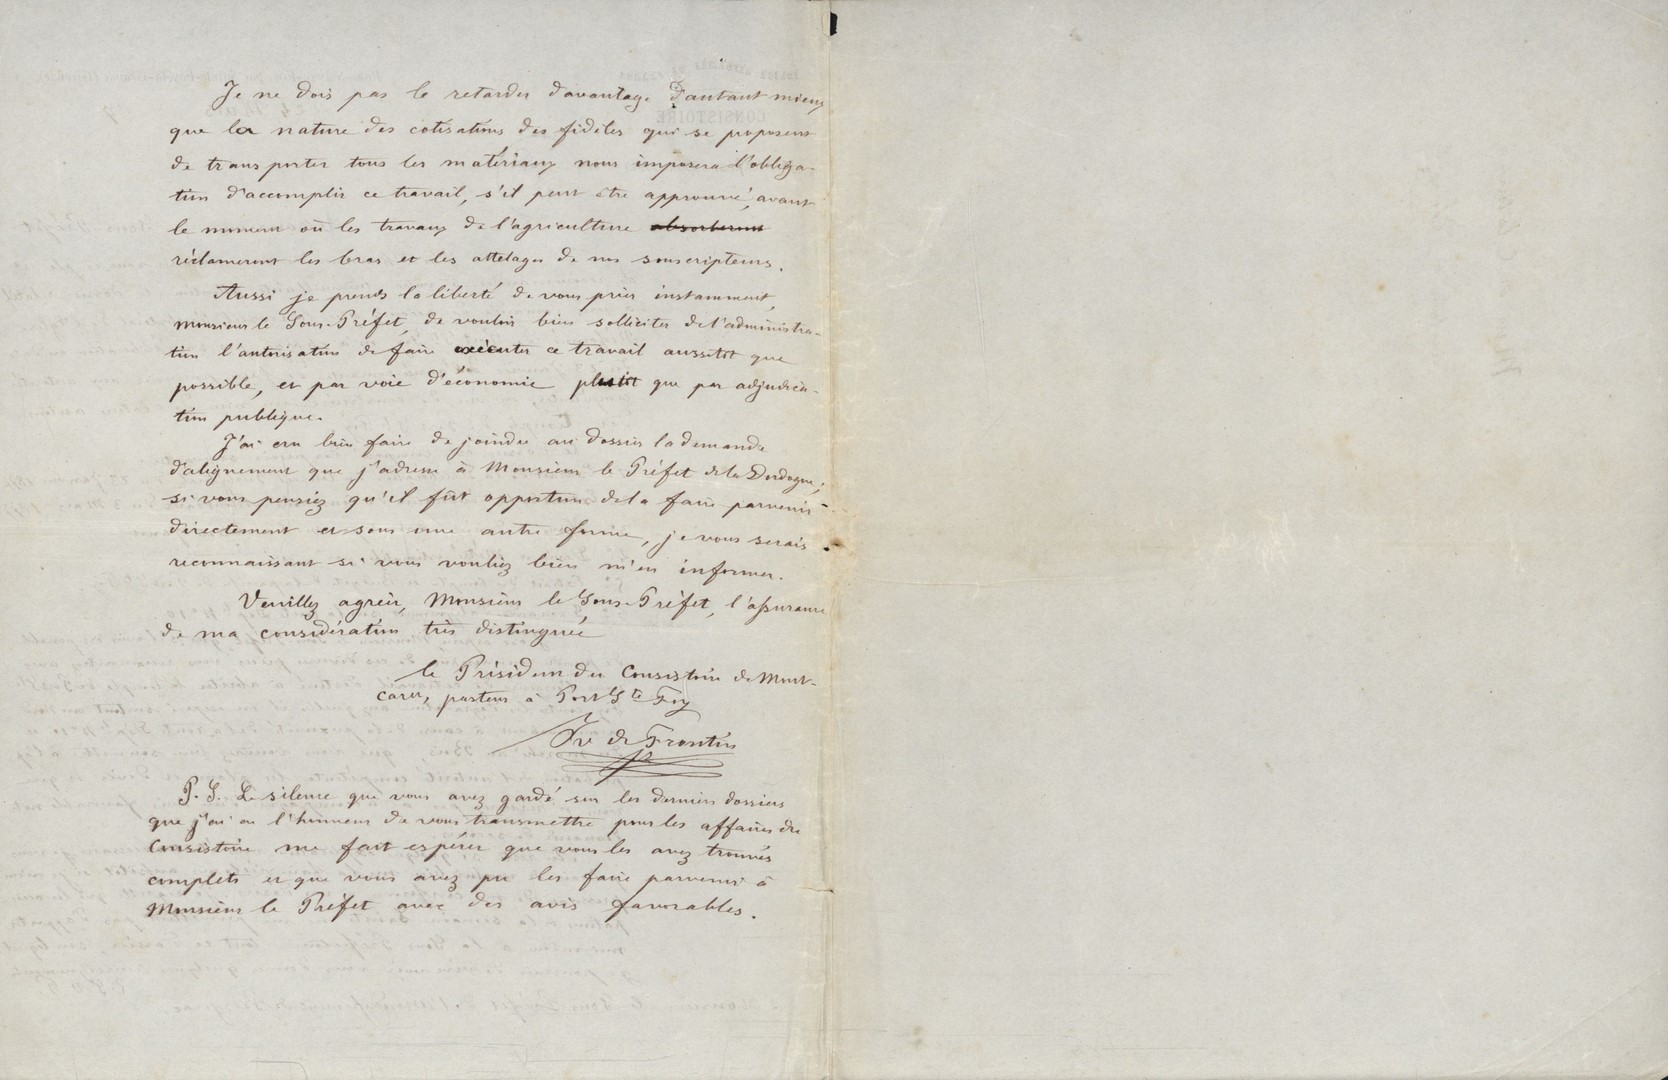 Je ne dois pas le retarder davantage d'autant mieux
que la nature des cotisations des fidèles qui se proposent
de transporter tous les matériaux nous imposera l'obliga-
tion d'accomplir ce travail, s'il peut être approuvé, avant
le moment où les travaux de l'agriculture absorberont
réclameront les bras et les attelages de nos souscripteurs.
Aussi je prends la liberté de vous prier instamment,
Monsieur le Sous-Préfet, de vouloir bien solliciter de l'administra-
tion l'autorisation de faire exécuter ce travail aussitôt que
possible, et par voie d'économie plutôt que par adjudica-
tion publique.
J'ai cru bien faire de joindre au dossier la demande
d'alignement que j'adresse à Monsieur le Préfet de la Dordogne;
si vous pensiez qu'il fût opportun de la faire parvenir
directement et sous une autre forme, je vous serais
reconnaissant si vous vouliez bien m'en informer.
Veuillez agréer, Monsieur le Sous-Préfet, l'assurance
de ma considération très distinguée
le Président du Consistoire de Mont-
caret, pasteur à Port Ste Foy
de Frontin
P. S. Le silence que vous avez gardé sur les derniers dossiers
que j'ai eu l'honneur de vous transmettre pour les affaires du
Consistoire me fait espérer que vous les avez trouvés
complets et que vous avez pu les faire parvenir à
Monsieur le Préfet avec des avis favorables.